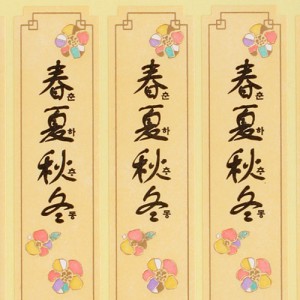 春춘
夏하
秋추
冬동
春춘
夏하
秋추
冬동
春춘
夏하
秋추
冬동